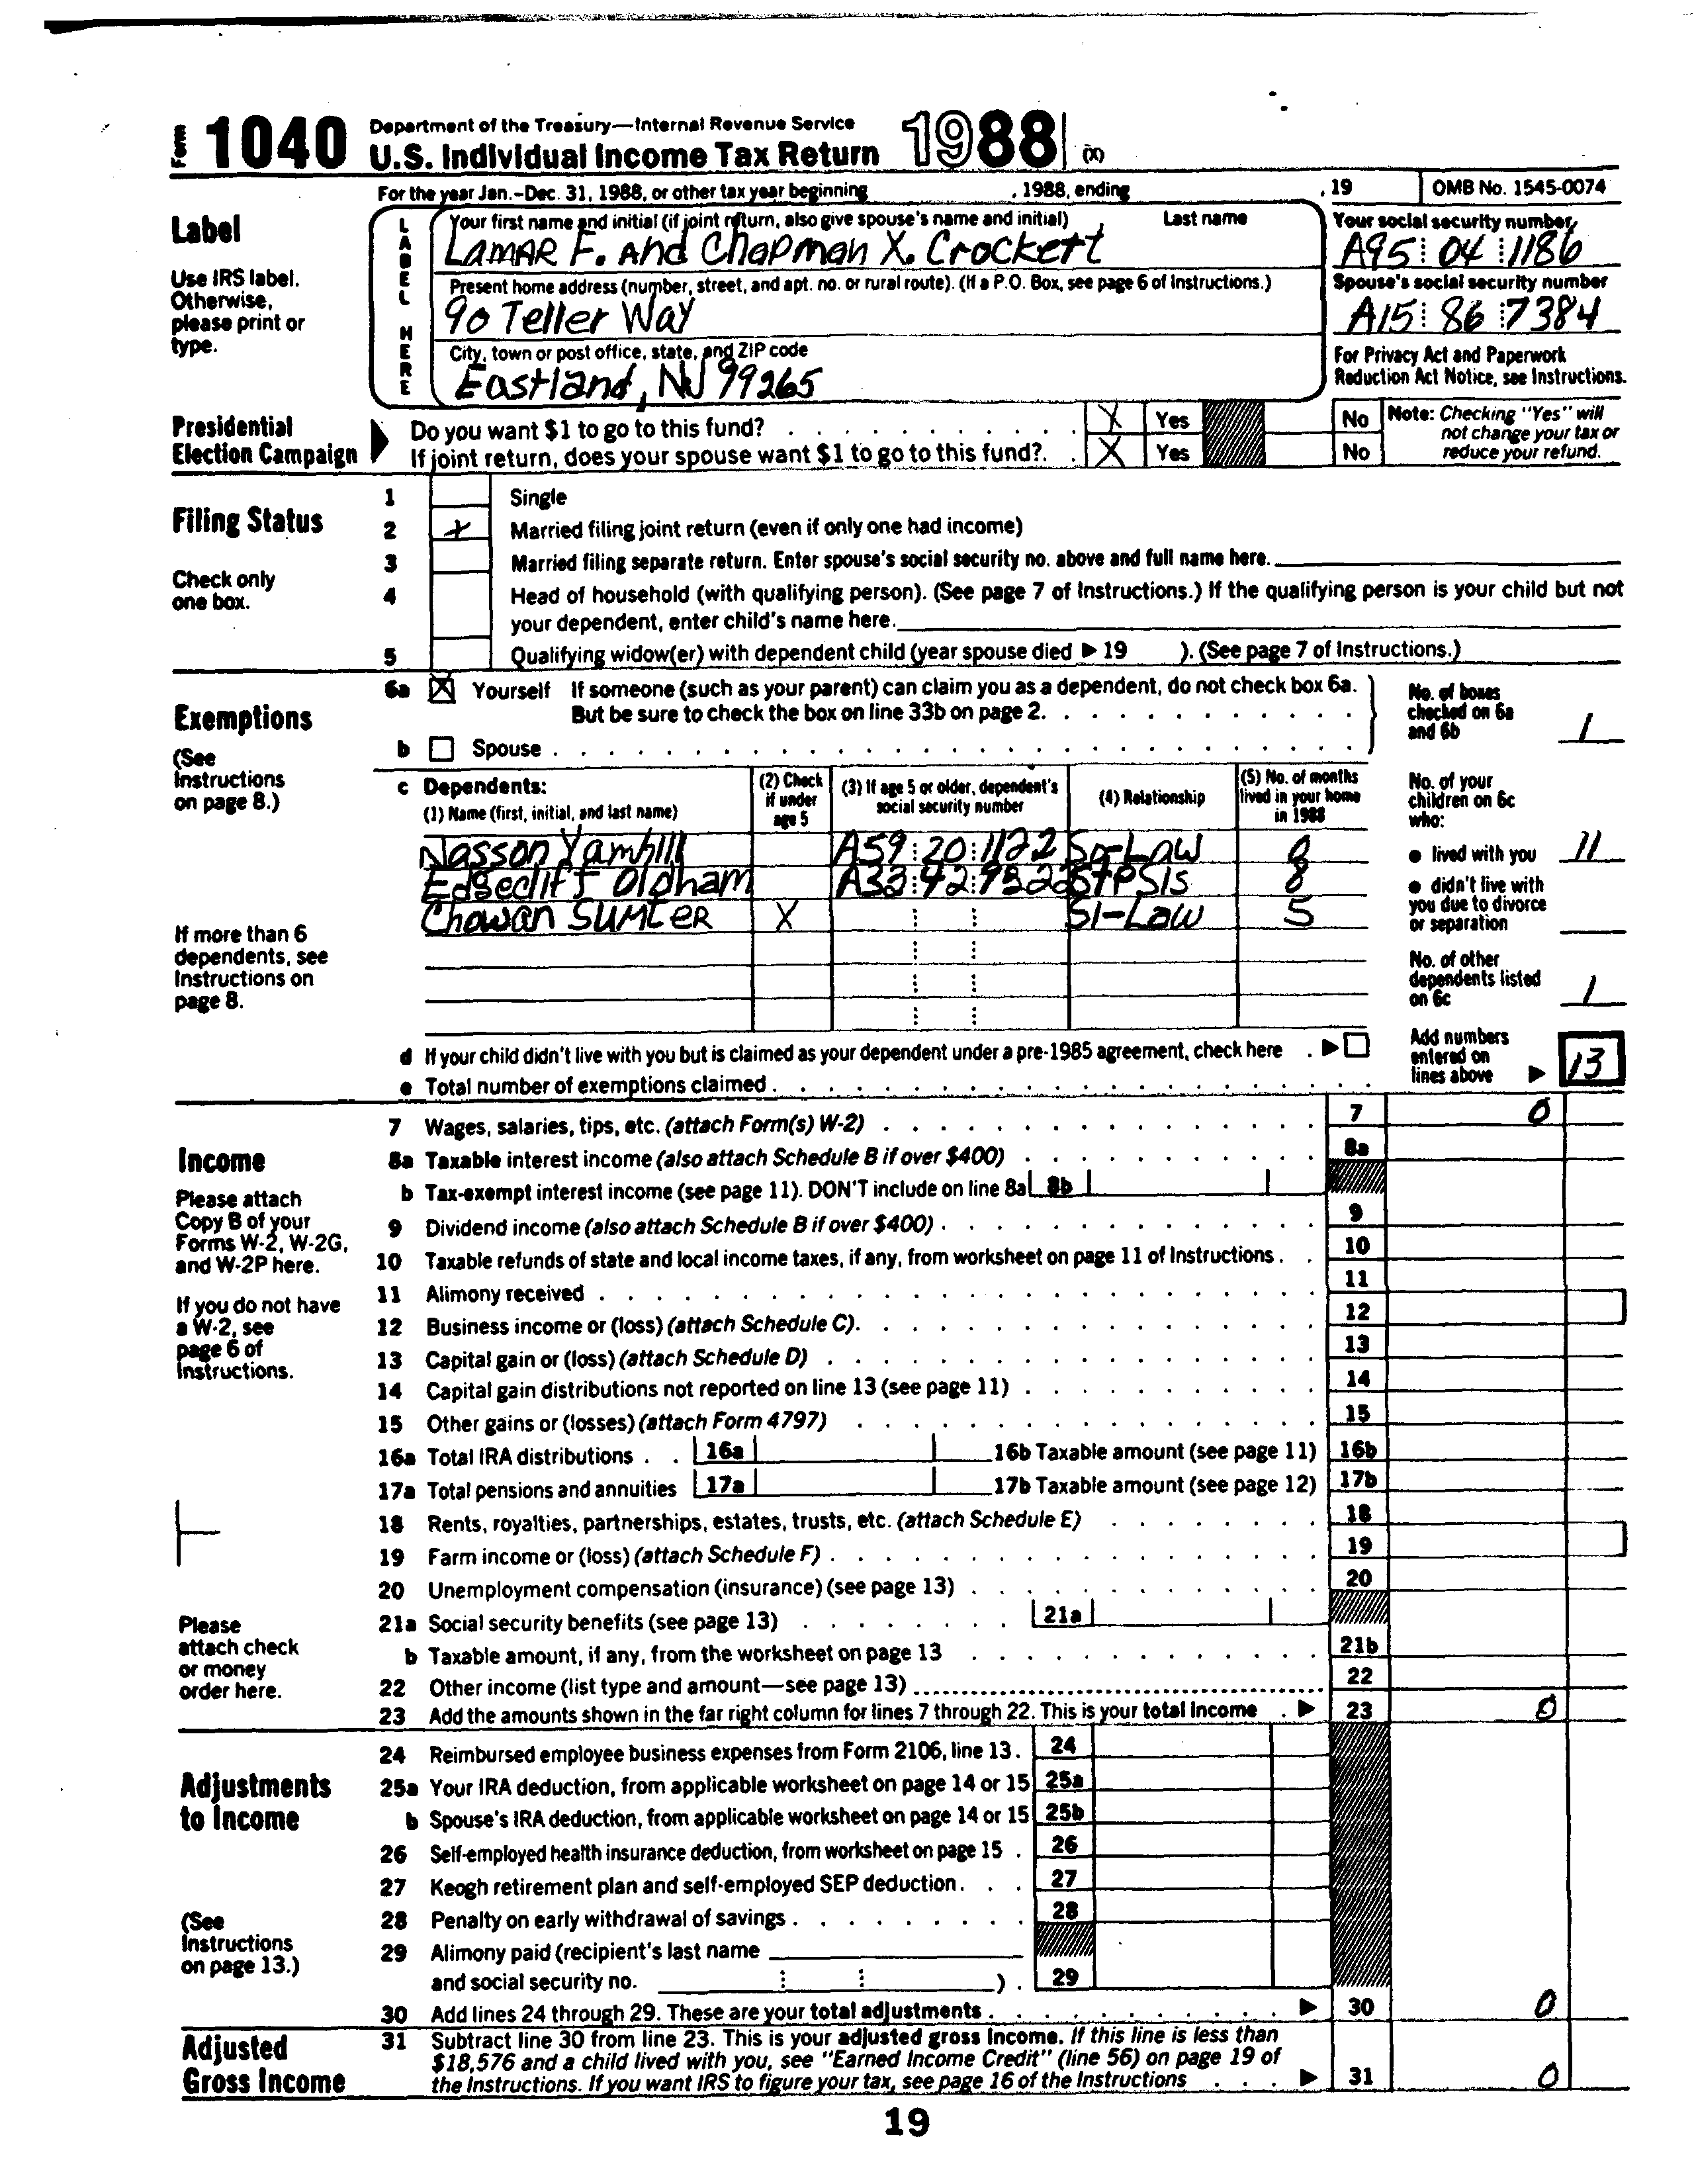 Form 1040 Department of the Treasury—Internal Revenue Service
U.S. Individual Income Tax Return 1988 (X)
For the year Jan.-Dec. 31, 1988, or other tax year beginning , 1988, ending , 19 OMB No. 1545-0074
Label
Use IRS label.
Otherwise,
please print or
type.
LABEL HERE
Your first name and initial (if joint return, also give spouse's name and initial) Last name
LaMAR F. And Chapman X. Crockett
Your social security number
A95 04 1186
Present home address (number, street, and apt. no. or rural route). (If a P.O. Box, see page 6 of Instructions.)
90 Teller Way
Spouse's social security number
A15 86 7384
City, town or post office, state, and ZIP code
Eastland, NJ 99265
For Privacy Act and Paperwork
Reduction Act Notice, see Instructions.
Presidential
Election Campaign
Do you want $1 to go to this fund? X Yes No
If joint return, does your spouse want $1 to go to this fund? X Yes No
Note: Checking "Yes" will
not change your tax or
reduce your refund.
Filing Status
Check only
one box.
1 Single
2 X Married filing joint return (even if only one had income)
3 Married filing separate return. Enter spouse's social security no. above and full name here.
4 Head of household (with qualifying person). (See page 7 of Instructions.) If the qualifying person is your child but not
your dependent, enter child's name here.
5 Qualifying widow(er) with dependent child (year spouse died ▶ 19 ). (See page 7 of Instructions.)
Exemptions
(See
Instructions
on page 8.)
6a X Yourself If someone (such as your parent) can claim you as a dependent, do not check box 6a.
But be sure to check the box on line 33b on page 2.
b Spouse
No. of boxes
checked on 6a
and 6b 1
c Dependents:
(1) Name (first, initial, and last name)
(2) Check
if under
age 5
(3) If age 5 or older, dependent's
social security number
(4) Relationship
(5) No. of months
lived in your home
in 1988
Nasson Yamhill A59 20 1122 So-Law 8
Edgeclift Oldham A33 42 9322 STPSIS 8
Chowan SUMTER X SI-Law 5
If more than 6
dependents, see
Instructions on
page 8.
No. of your
children on 6c
who:
● lived with you 11
● didn't live with
you due to divorce
or separation
No. of other
dependents listed
on 6c 1
d If your child didn't live with you but is claimed as your dependent under a pre-1985 agreement, check here ▶
e Total number of exemptions claimed
Add numbers
entered on
lines above ▶ 13
Income
Please attach
Copy B of your
Forms W-2, W-2G,
and W-2P here.
If you do not have
a W-2, see
page 6 of
Instructions.
Please
attach check
or money
order here.
7 Wages, salaries, tips, etc. (attach Form(s) W-2) 7 0
8a Taxable interest income (also attach Schedule B if over $400) 8a
b Tax-exempt interest income (see page 11). DON'T include on line 8a 8b
9 Dividend income (also attach Schedule B if over $400) 9
10 Taxable refunds of state and local income taxes, if any, from worksheet on page 11 of Instructions 10
11 Alimony received 11
12 Business income or (loss) (attach Schedule C) 12
13 Capital gain or (loss) (attach Schedule D) 13
14 Capital gain distributions not reported on line 13 (see page 11) 14
15 Other gains or (losses) (attach Form 4797) 15
16a Total IRA distributions 16a 16b Taxable amount (see page 11) 16b
17a Total pensions and annuities 17a 17b Taxable amount (see page 12) 17b
18 Rents, royalties, partnerships, estates, trusts, etc. (attach Schedule E) 18
19 Farm income or (loss) (attach Schedule F) 19
20 Unemployment compensation (insurance) (see page 13) 20
21a Social security benefits (see page 13) 21a
b Taxable amount, if any, from the worksheet on page 13 21b
22 Other income (list type and amount—see page 13) 22
23 Add the amounts shown in the far right column for lines 7 through 22. This is your total income ▶ 23 0
Adjustments
to Income
(See
Instructions
on page 13.)
24 Reimbursed employee business expenses from Form 2106, line 13. 24
25a Your IRA deduction, from applicable worksheet on page 14 or 15 25a
b Spouse's IRA deduction, from applicable worksheet on page 14 or 15 25b
26 Self-employed health insurance deduction, from worksheet on page 15 26
27 Keogh retirement plan and self-employed SEP deduction 27
28 Penalty on early withdrawal of savings 28
29 Alimony paid (recipient's last name
and social security no. ) 29
30 Add lines 24 through 29. These are your total adjustments ▶ 30 0
Adjusted
Gross Income
31 Subtract line 30 from line 23. This is your adjusted gross income. If this line is less than
$18,576 and a child lived with you, see "Earned Income Credit" (line 56) on page 19 of
the Instructions. If you want IRS to figure your tax, see page 16 of the Instructions ▶ 31 0
19